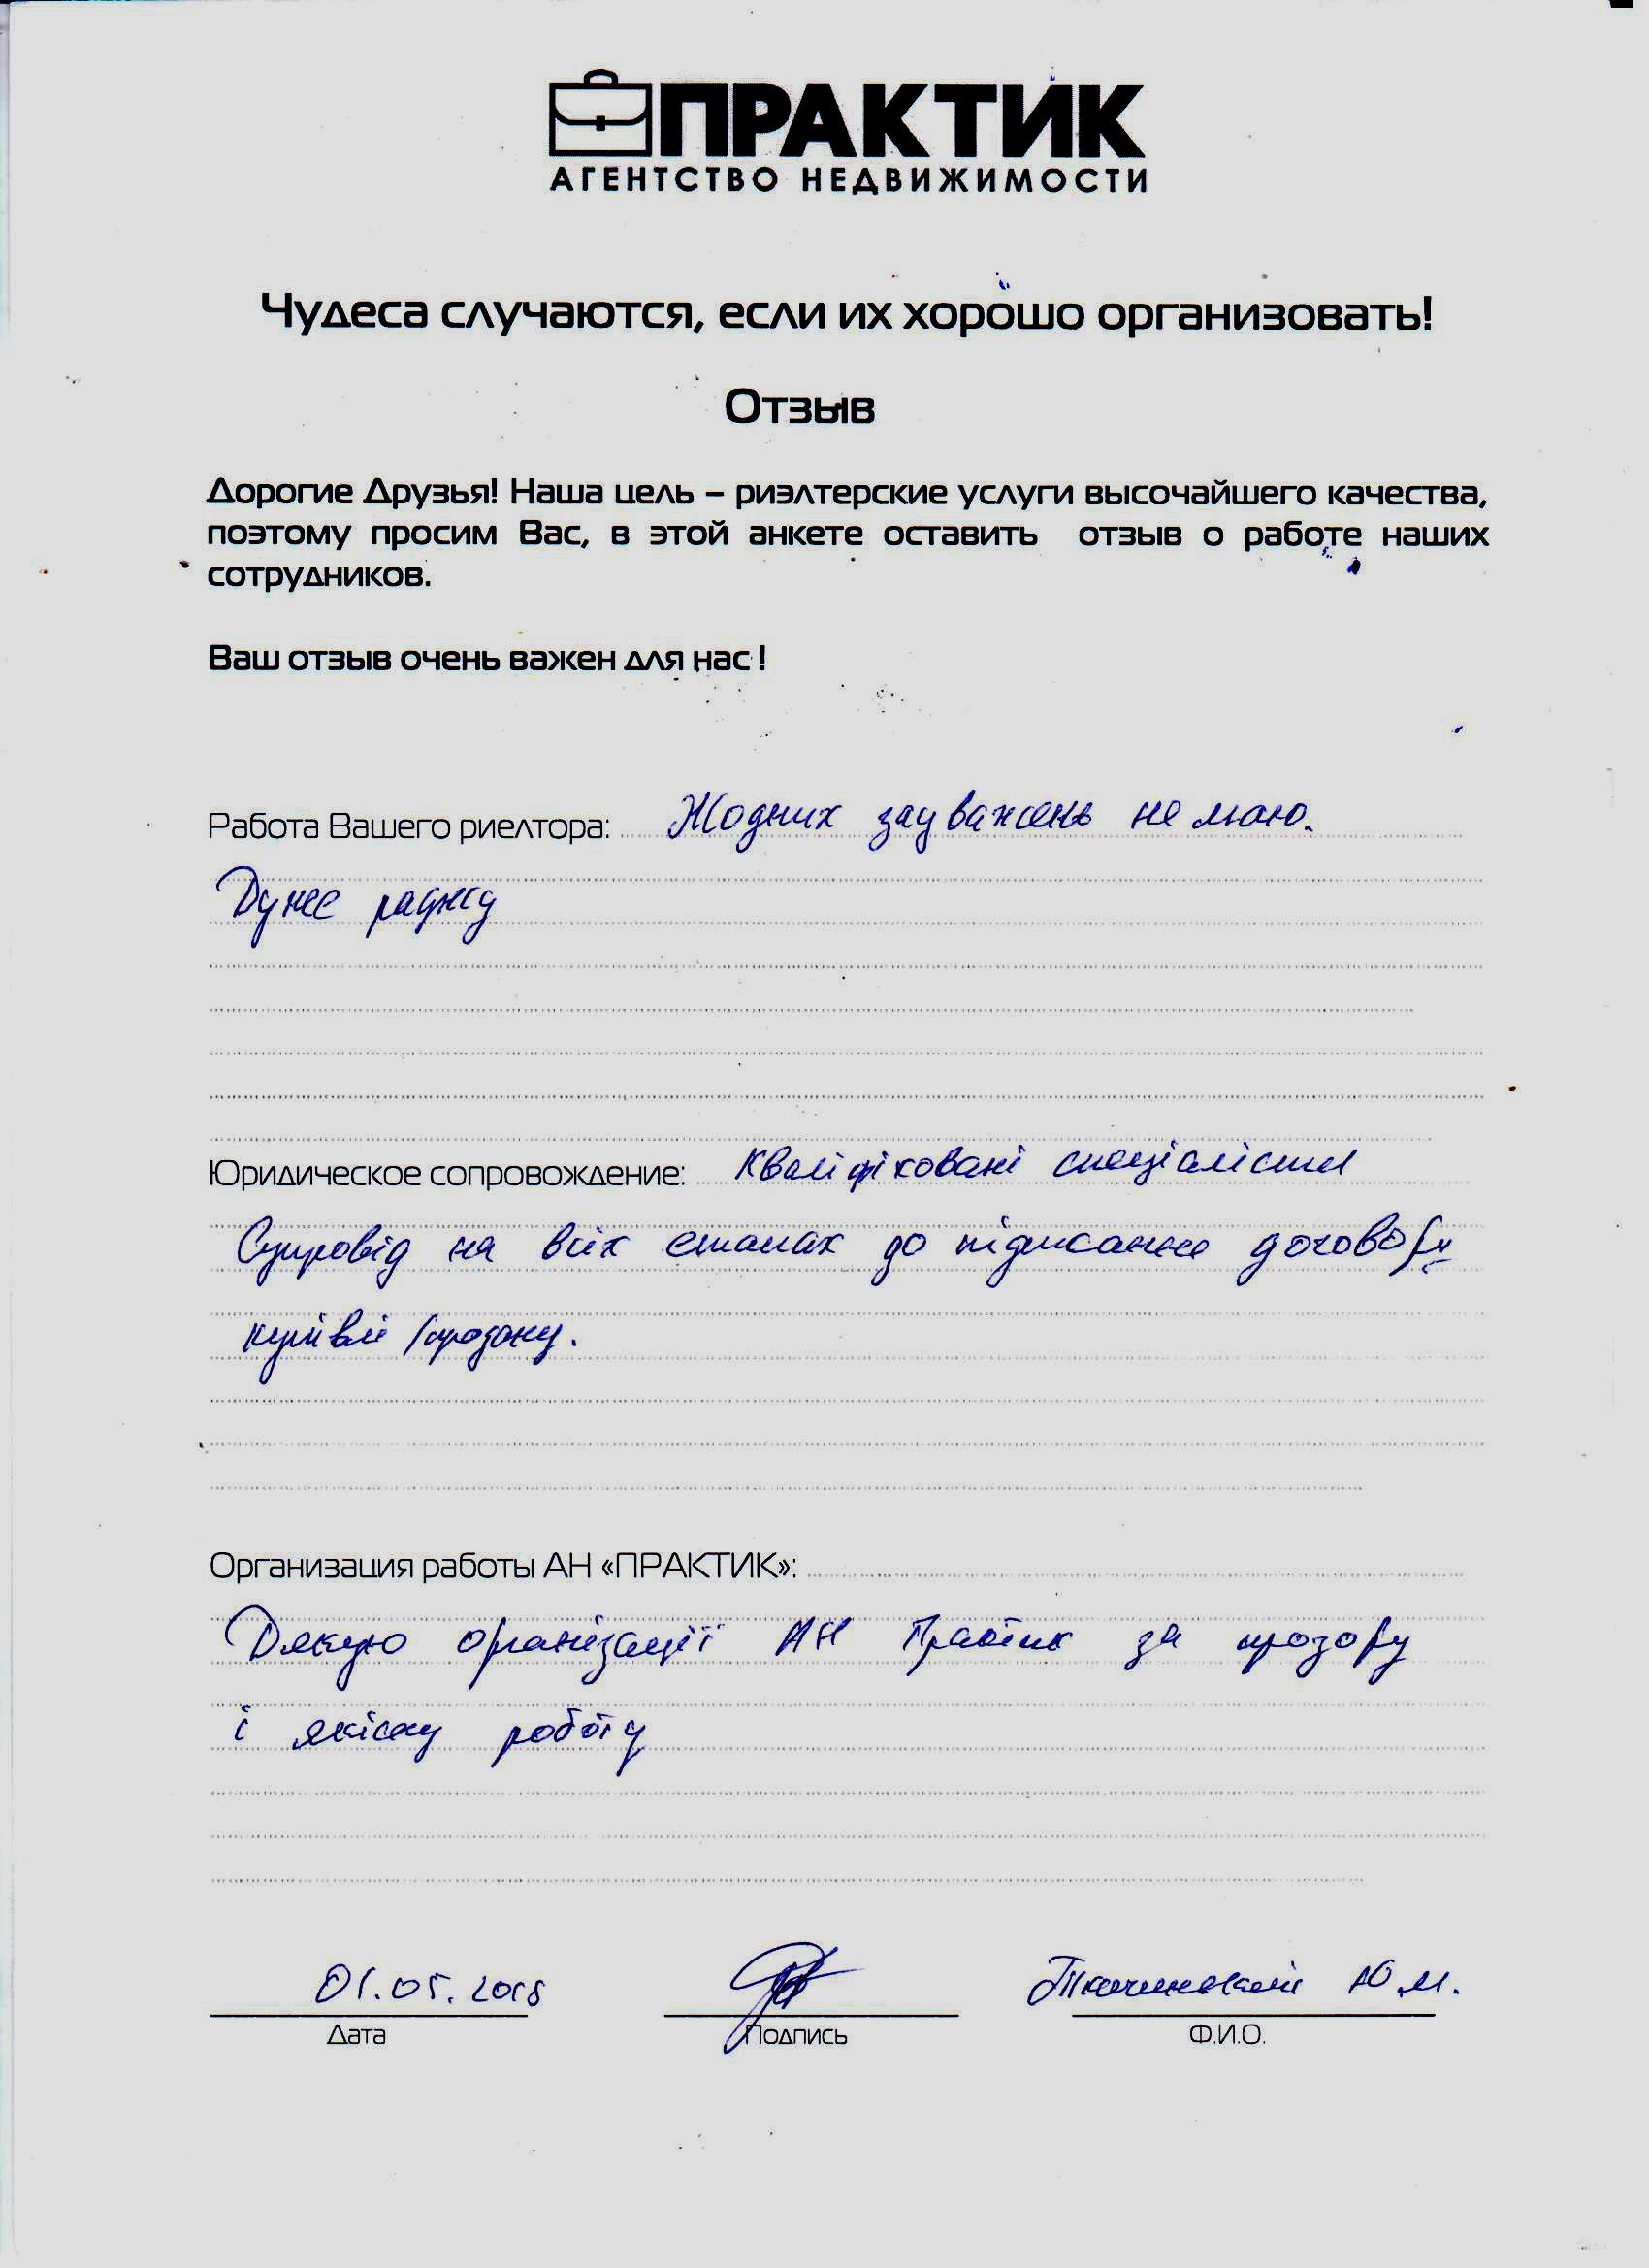 ПРАКТИК
АГЕНТСТВО НЕДВИЖИМОСТИ
Чудеса случаются, если их хорошо организовать!
Отзыв
Дорогие Друзья! Наша цель – риэлтерские услуги высочайшего качества,
поэтому просим Вас, в этой анкете оставить отзыв о работе наших
сотрудников.
Ваш отзыв очень важен для нас!
Работа Вашего риелтора: Жодних зауважень не маю.
Дуже раджу
Юридическое сопровождение: Кваліфіковані спеціалісти
Супровід на всіх етапах до підписання договору
купівлі/продажу.
Организация работы АН «ПРАКТИК»:
Дякую організації АН Практик за прозору
і якісну роботу
01.05.2018
Ю.М.
Дата Подпись Ф.И.О.